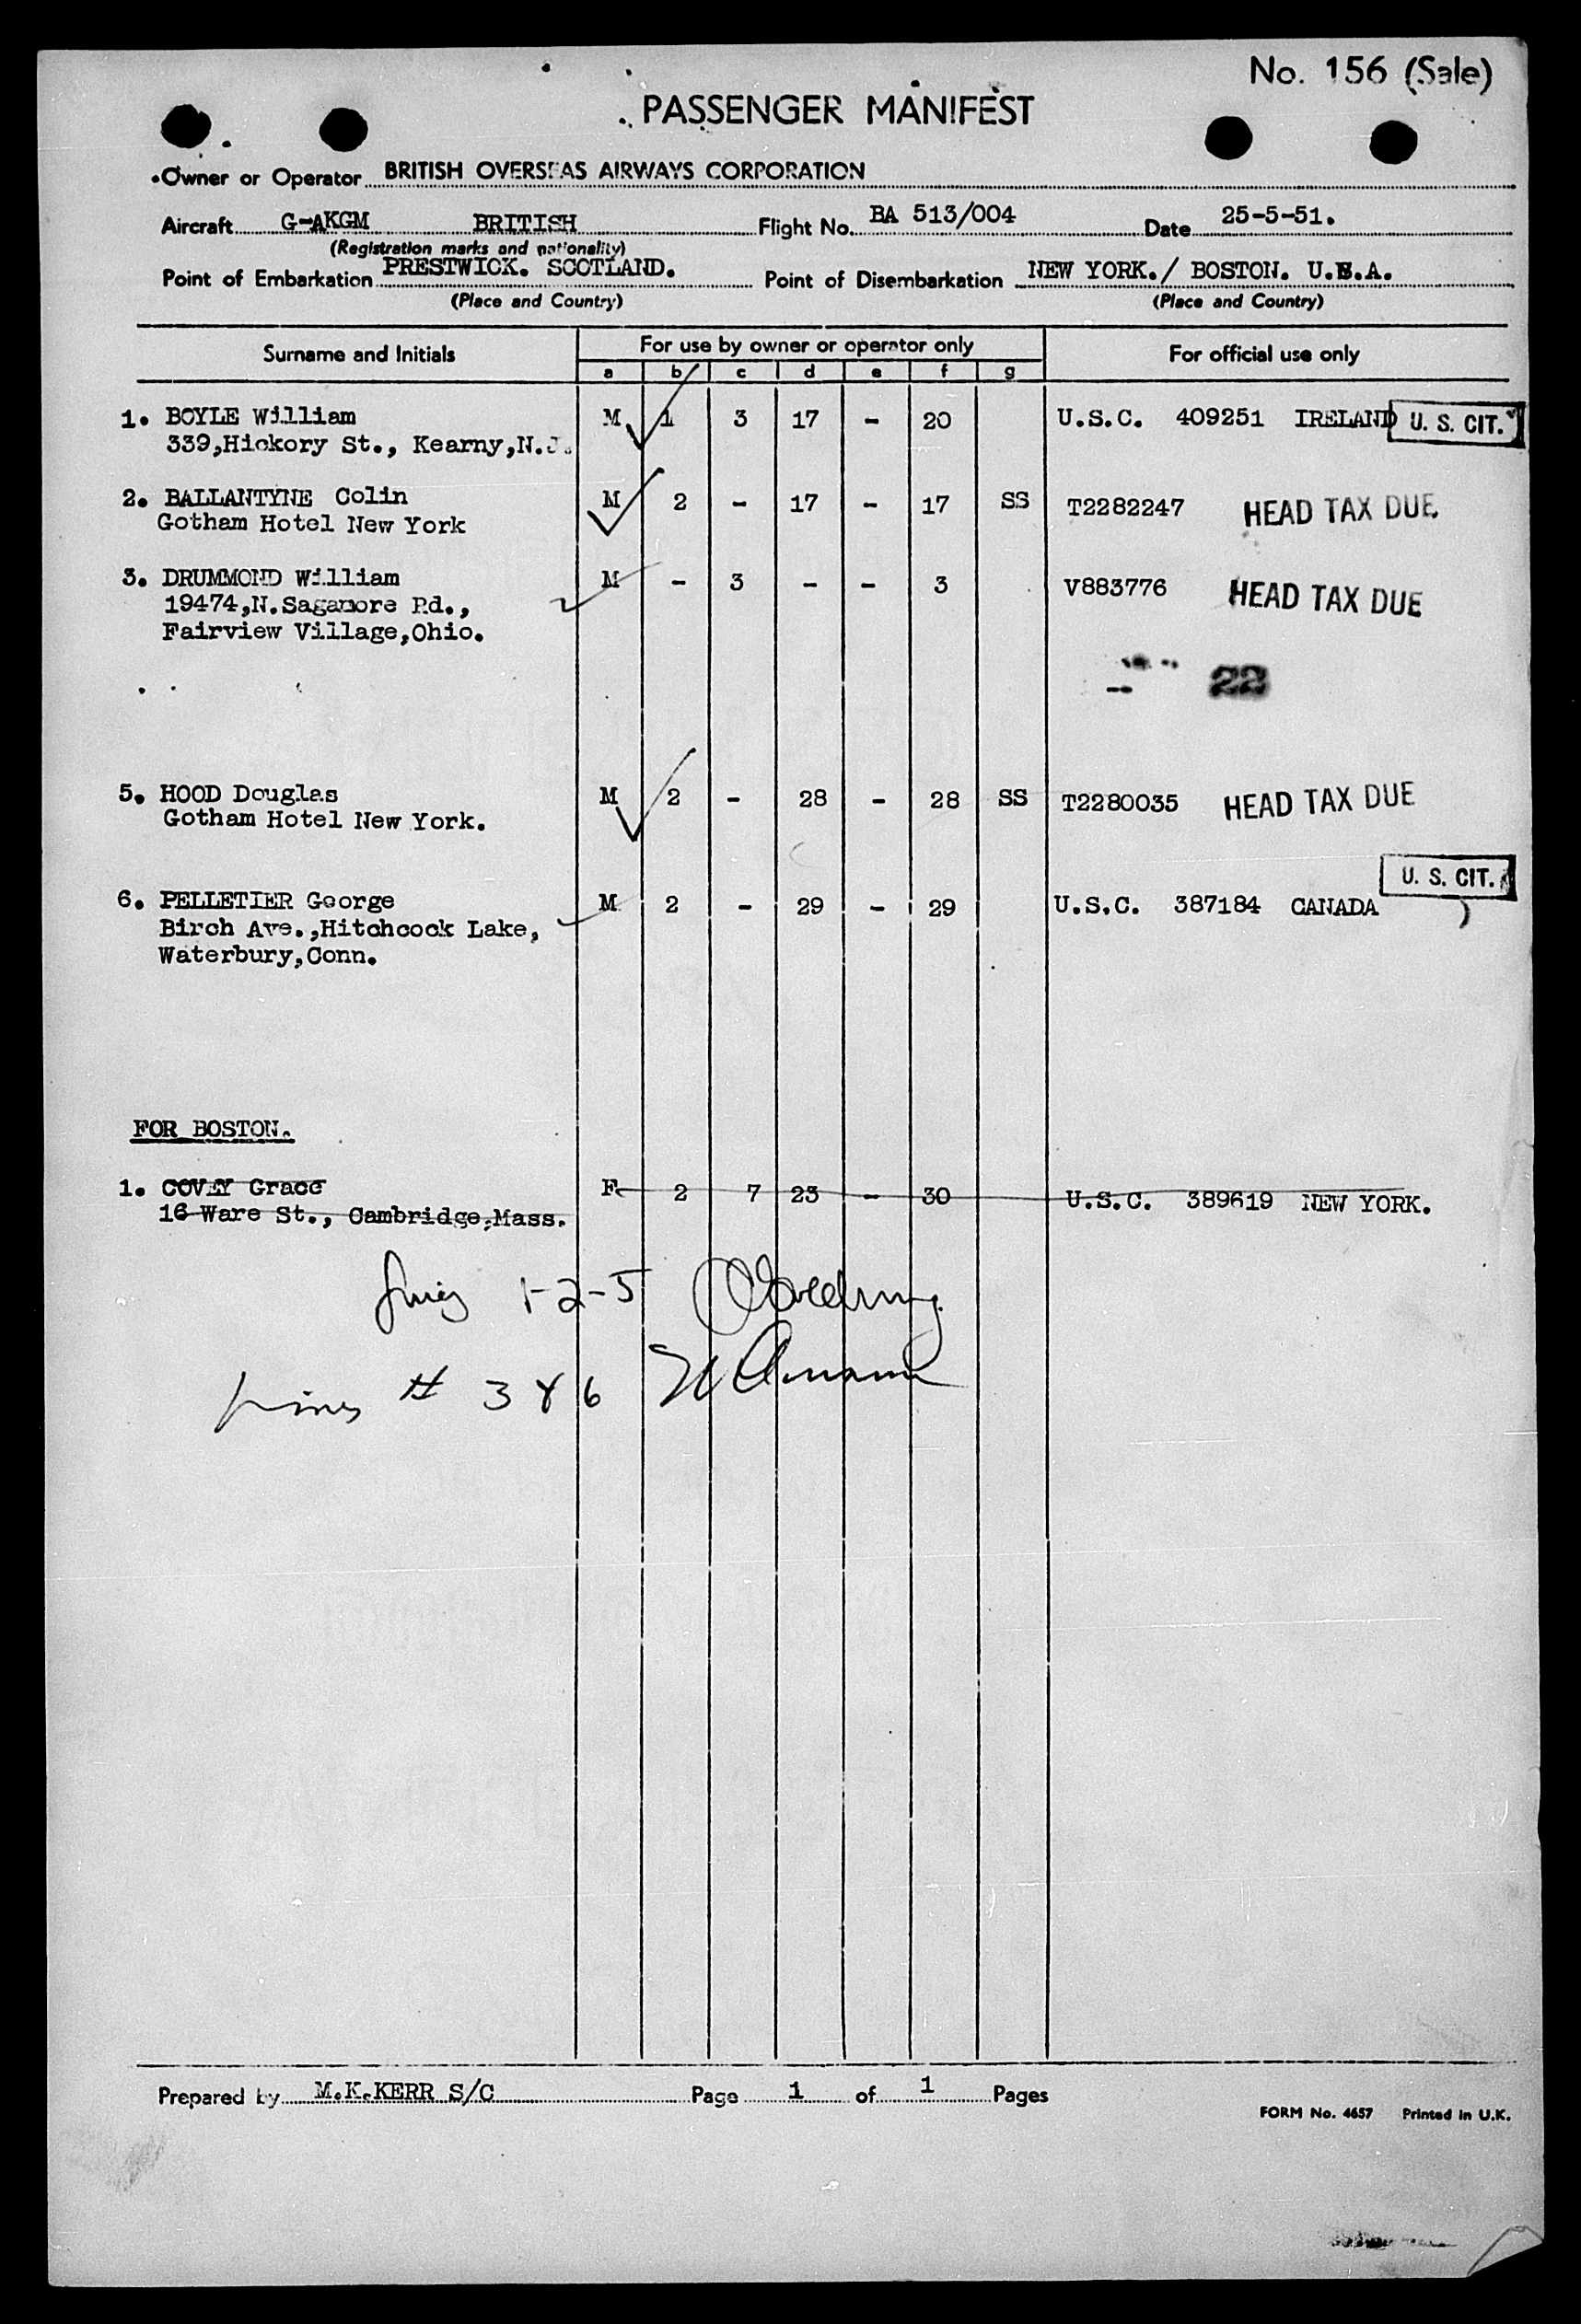 No. 156 (Sale)
PASSENGER MANIFEST
Owner or Operator BRITISH OVERSEAS AIRWAYS CORPORATION
Aircraft G-AKGM BRITISH Flight No. BA 513/004 Date 25-5-51.
(Registration marks and nationality)
Point of Embarkation PRESTWICK. SCOTLAND. Point of Disembarkation NEW YORK./ BOSTON. U.S.A.
(Place and Country) (Place and Country)
Surname and Initials For use by owner or operator only For official use only
a b c d e f g
1. BOYLE William M 1 3 17 - 20 U.S.C. 409251 IRELAND U. S. CIT.
339,Hickory St., Kearny,N.J.
2. BALLANTYNE Colin M 2 - 17 - 17 SS T2282247 HEAD TAX DUE
Gotham Hotel New York
3. DRUMMOND William M - 3 - - 3 V883776 HEAD TAX DUE
19474,N.Sagamore Rd.,
Fairview Village,Ohio.
22
5. HOOD Douglas M 2 - 28 - 28 SS T2280035 HEAD TAX DUE
Gotham Hotel New York.
U. S. CIT.
6. PELLETIER George M 2 - 29 - 29 U.S.C. 387184 CANADA
Birch Ave.,Hitchcock Lake,
Waterbury,Conn.
FOR BOSTON.
1. COVEY Grace F 2 7 23 - 30 U.S.C. 389619 NEW YORK.
16 Ware St., Cambridge,Mass.
1-2-5
# 3 & 6
Prepared by M.K.KERR S/C Page 1 of 1 Pages
FORM No. 4657 Printed in U.K.